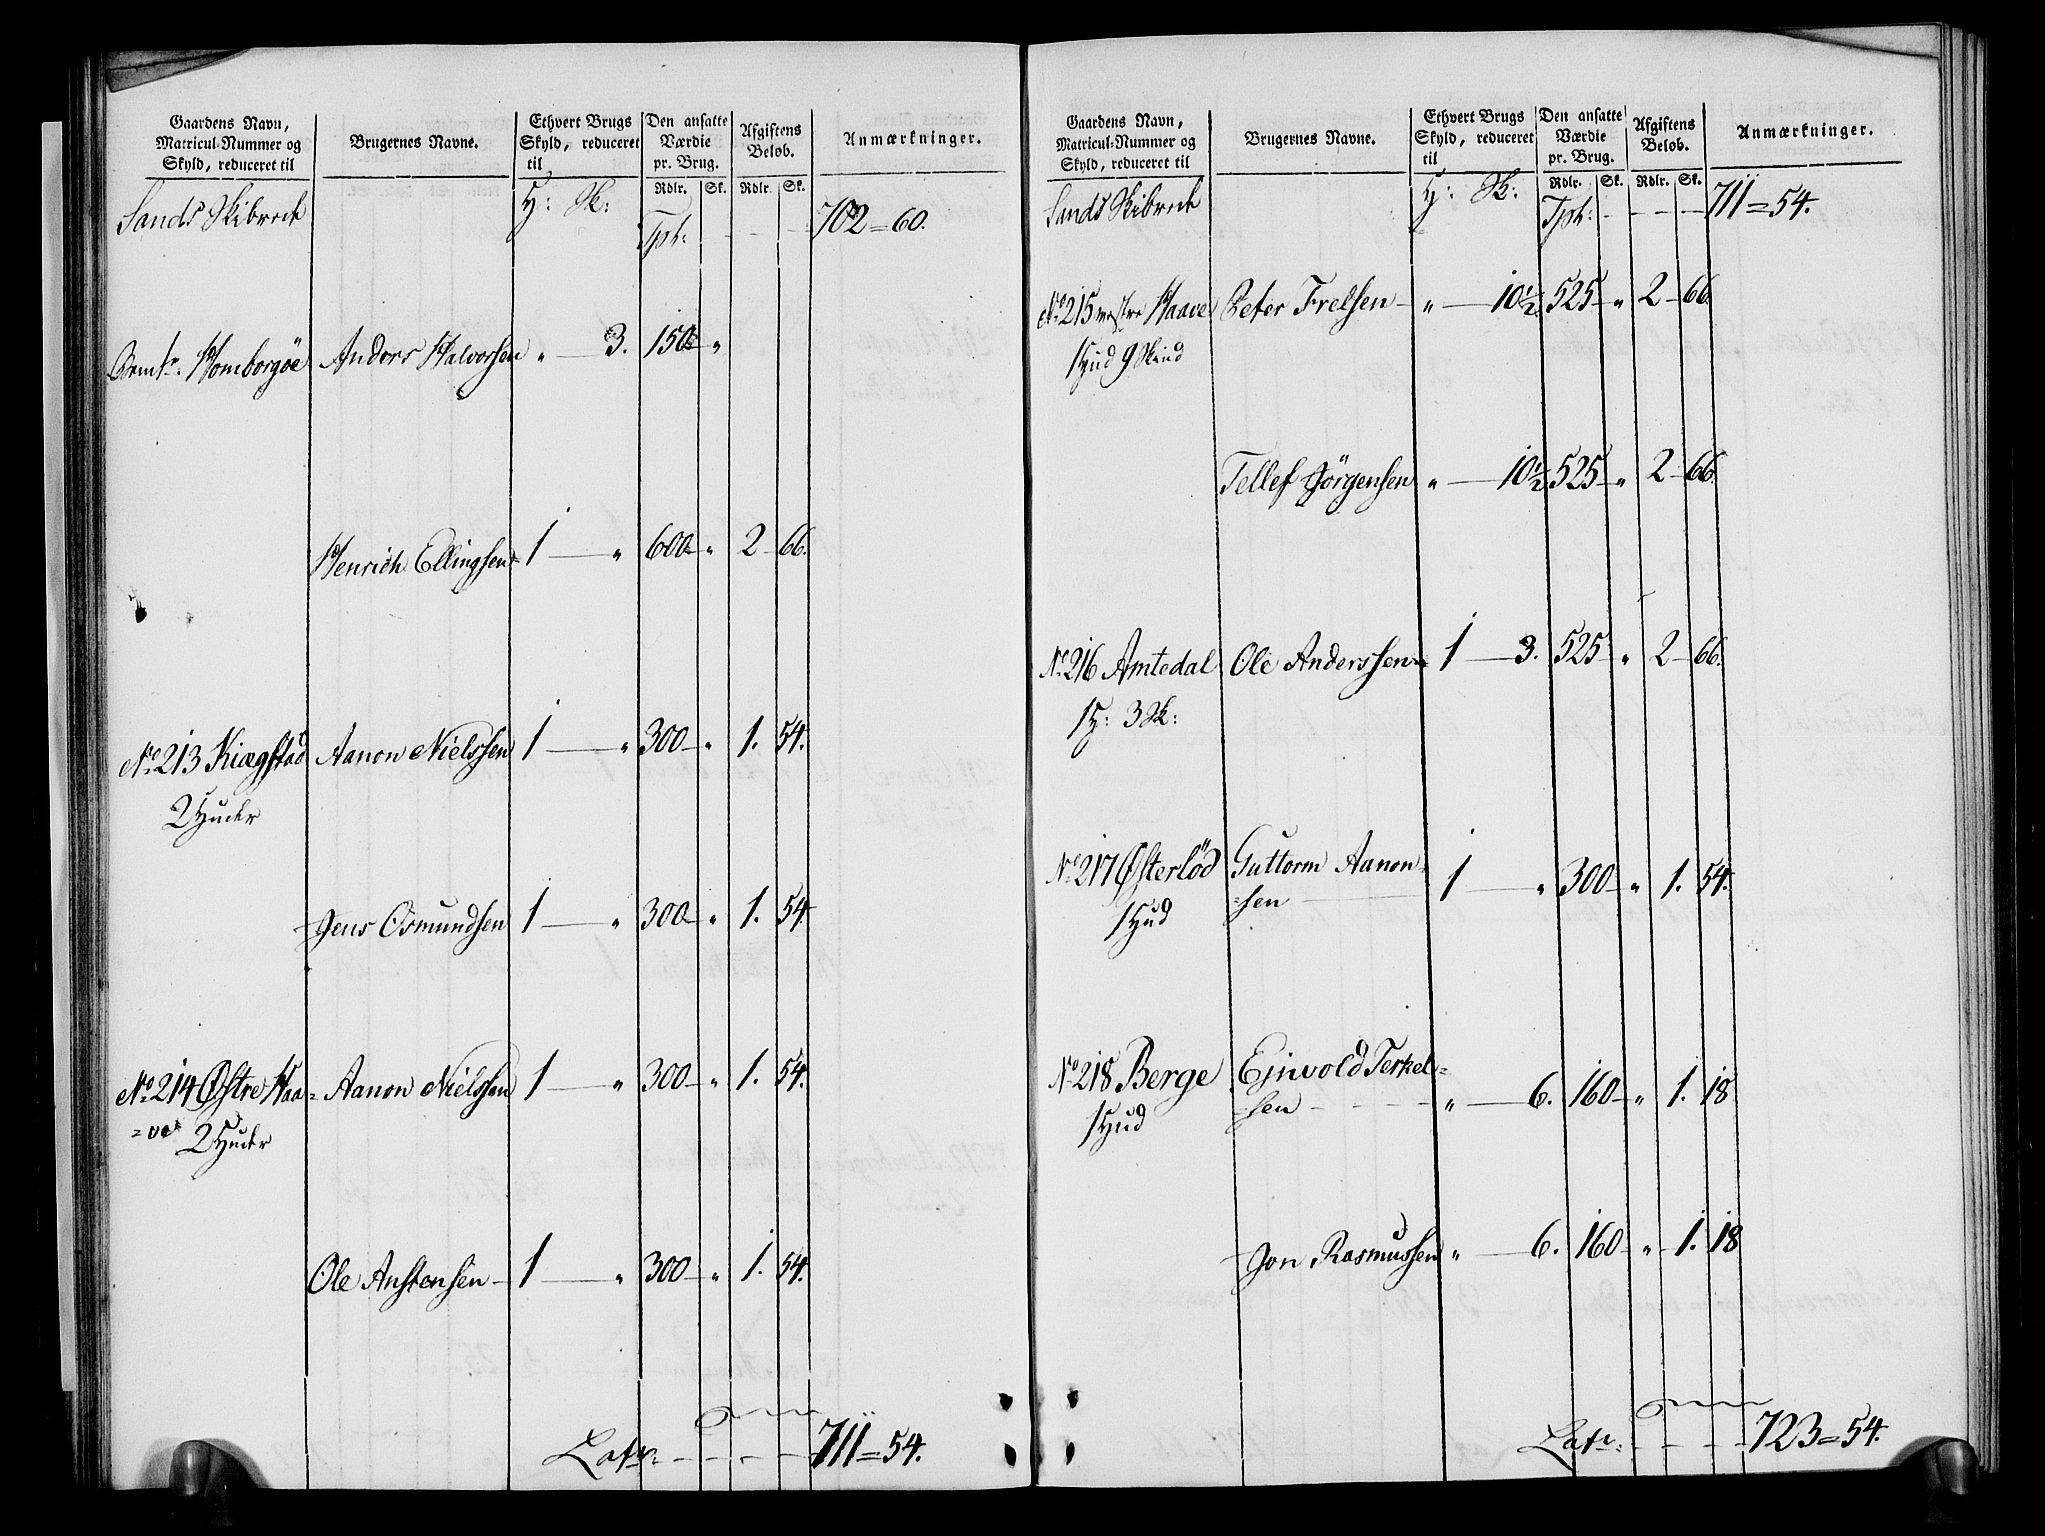 Gaardens Navn,
Matricul-Nummer og
Skyld, reduceret til
Brugernes Navne.
Ethvert Brugs
Skyld, reduceret
til
Den ansatte
Værdie
pr. Brug.
Afgiftens
Beløb.
Anmærkninger.
Rdlr. Sk. Rdlr. Sk.
Sands Skibreds H: Sk: Tpt: 702=60.
Homborgøe Anders Halvorsen „ 3. 150 „
Henrich Ellingsen 1 „ 600 „ 2 66.
No 213 Kiægstad Aanon Nielssen 1 „ 300 „ 1. 54.
2 Huder
Jens Osmundsen 1 „ 300 „ 1. 54.
No 214 Østre Haa= Aanon Nielssen 1 „ 300 „ 1. 54.
=ve 2 Huder
Ole Anstensen 1 „ 300 „ 1. 54.
Latr: 711=54.
Gaardens Navn,
Matricul-Nummer og
Skyld, reduceret til
Brugernes Navne.
Ethvert Brugs
Skyld, reduceret
til
Den ansatte
Værdie
pr. Brug.
Afgiftens
Beløb.
Anmærkninger.
Rdlr. Sk. Rdlr. Sk.
Sands Skibreds H: Sk: Tpt: 711=54.
No 215 vestre Haave Peter Frelsen „ 10½ 525 „ 2 66.
1 Hud 9 Skind
Tellef Jörgensen „ 10½ 525 „ 2 66.
No 216 Amtedal Ole Anderssen 1 3. 525 „ 2 66.
1 H: 3 Sk:
No 217 Østerlöd Guttorm Aanon=
1 Hud =sen 1 „ 300 „ 1. 54.
No 218 Berge Ejnvold Terkel=
1 Hud =sen „ 6. 160 „ 1. 18
Jon Rasmussen „ 6. 160 „ 1. 18
Latr: 723=54.